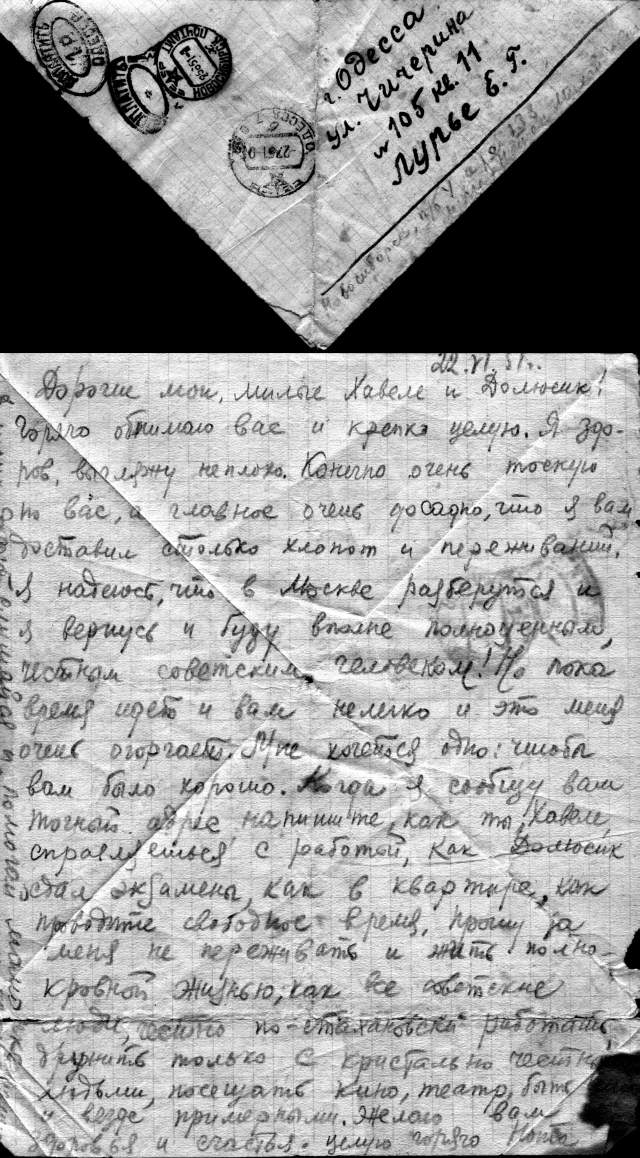 г. Одесса
ул. Чичерина
№ 105 кв. 11
Лурье Б. Г.
Новосибирск, п/я
22.VI.51г.
Дорогие мои, милые Хавеле и Долюсик!
Горячо обнимаю вас и крепко целую. Я здо-
ров, выгляжу неплохо. Конечно очень тоскую
по вас, а главное очень досадно, что я вам
доставил столько хлопот и переживаний.
Я надеюсь, что в Москве разберутся и
я вернусь и буду вполне полноценным,
честным советским человеком! Но пока
время идет и вам нелегко и это меня
очень огорчает. Мне хочется одно: чтобы
вам было хорошо. Когда я сообщу вам
точный адрес, напишите, как ты, Хавеле,
справляешься с работой, как Долюсик
сдал экзамены, как в квартире, как
проводите свободное время, прошу за
меня не переживать и жить полно-
кровной жизнью, как все советские
люди, честно по-стахановски работать,
дружить только с кристально честн
людьми, посещать кино, театр, быть
и везде примерными. Желаю вам
здоровья и счастья. Целую горячо